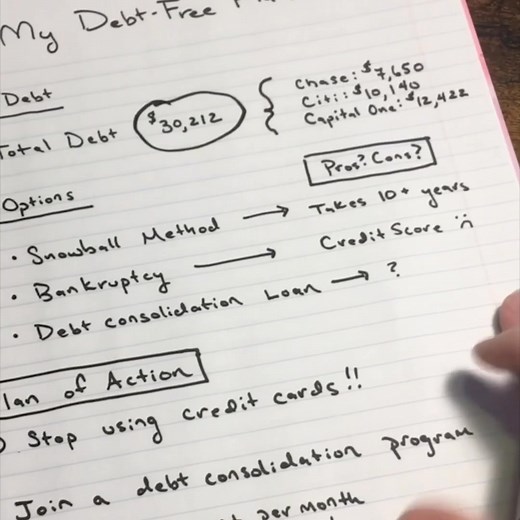 My Debt-Free
Debt
Total Debt $30,212 { Chase: $7,650
Citi: $10,140
Capital One: $12,422
Pros? Cons?
Options
• Snowball Method → Takes 10+ years
• Bankruptcy → Credit Score :(
• Debt consolidation Loan → ?
lan of Action
Stop using credit cards!!
Join a debt consolidation program
per month